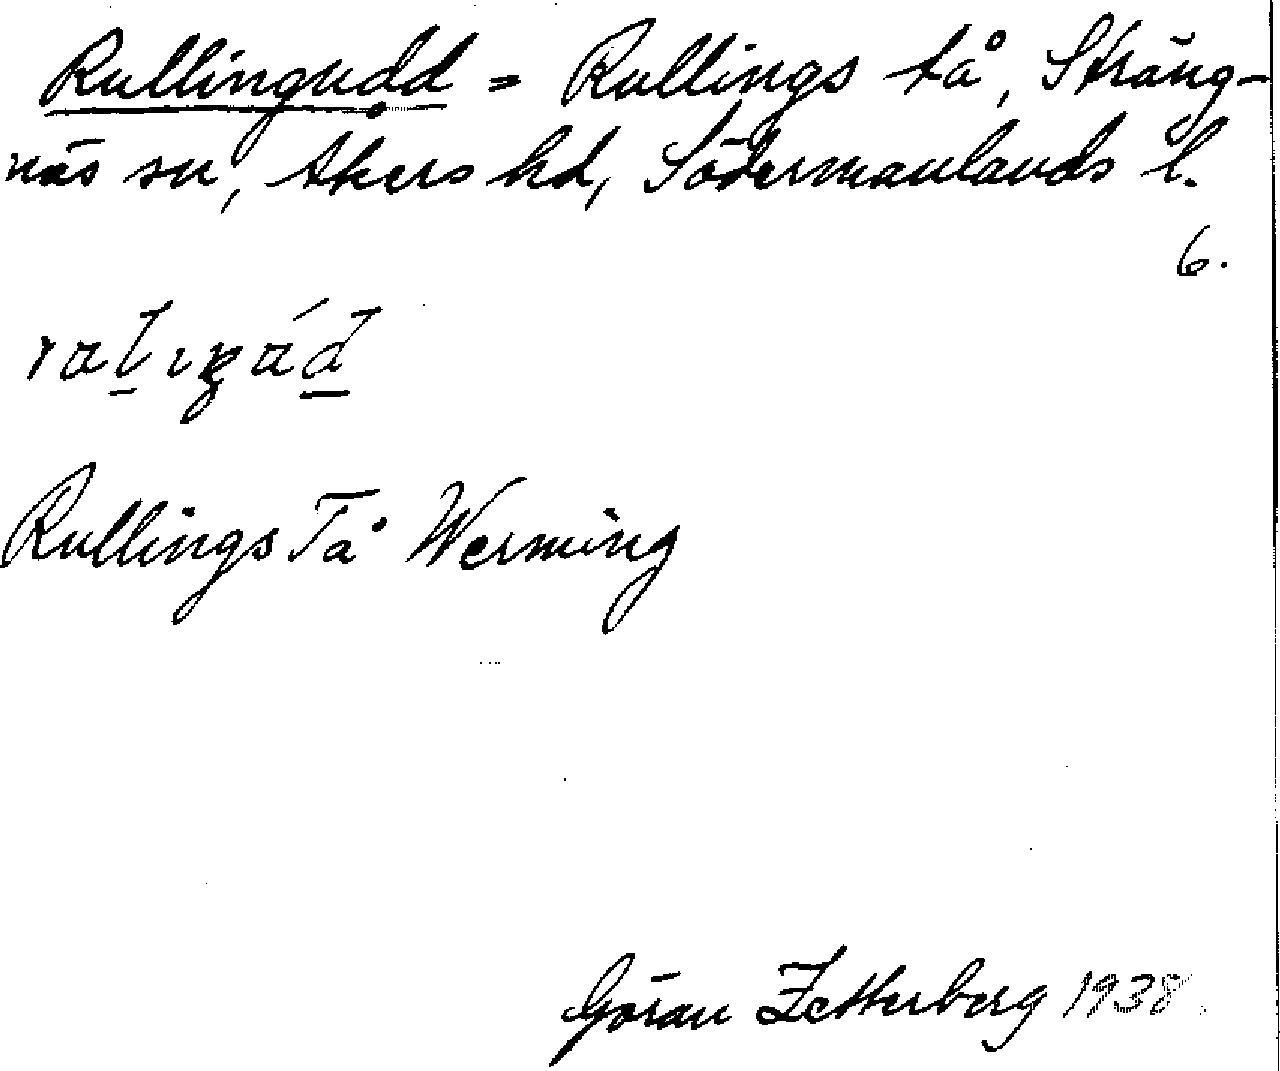 Rullingudd = Rullings tå, Sträng-
näs sn, Åkers hd, Södermanlands l.
6.
Rullings Tå Werming
Göran Zetterberg 1938.